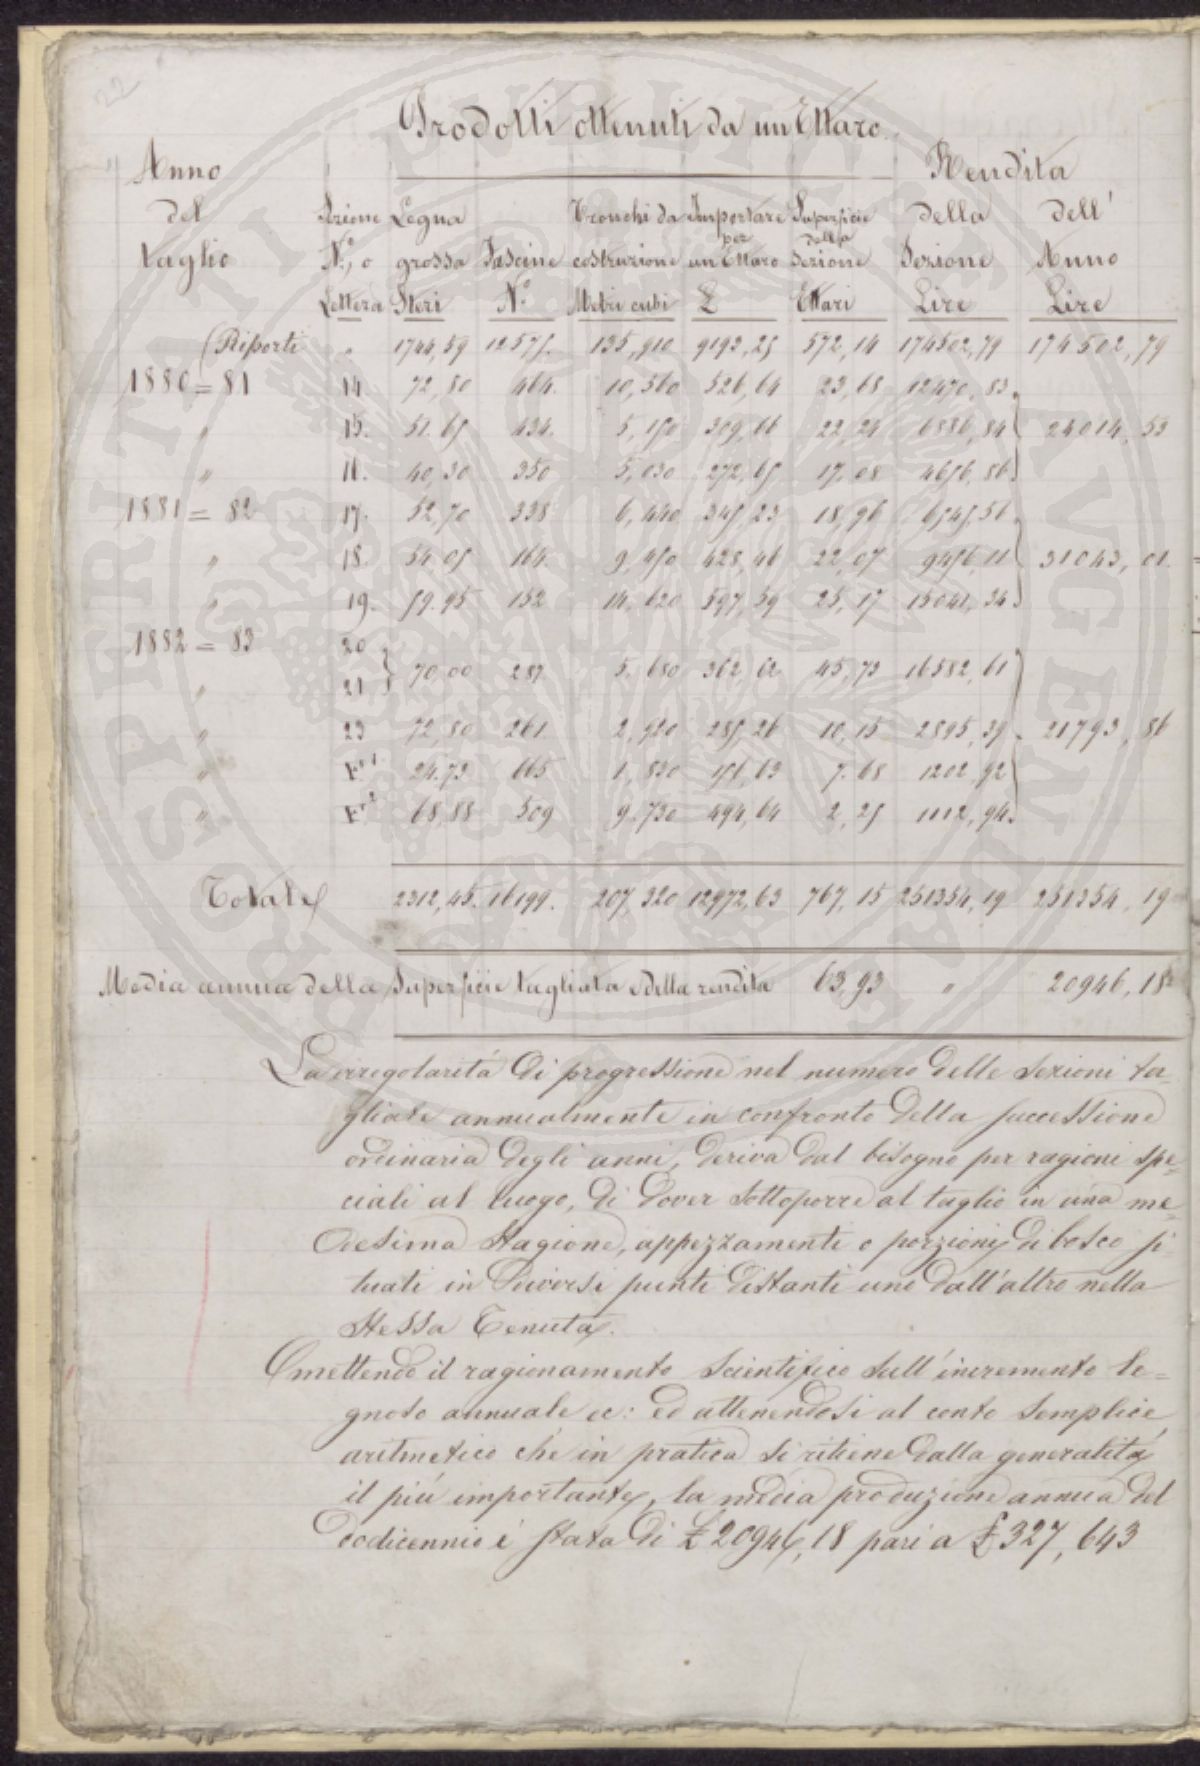 22
Prodotti ottenuti da un Ettaro.
Anno del taglio | Sezione N.° o Lettera | Legna grossa Steri | Fascine N.° | Tronchi da costruzione Metri cubi | Importare per un Ettaro £ | Superficie della Sezione Ettari | Rendita della Sezione Lire | Rendita dell' Anno Lire
Riporti | " | 1744,59 | 12575. | 135,910 | 9193,25 | 572,14 | 174502,79 | 174502,79
1880=81 | 14. | 72,80 | 464. | 10,560 | 526,64 | 23,68 | 12470,83 | 24014,53
" | 15. | 51.65 | 434. | 5,150 | 309,66 | 22,24 | 6886,84
" | 16. | 40,30 | 350 | 5,030 | 272,65 | 17,08 | 4656,86
1881=82 | 17. | 52,70 | 338 | 6,440 | 345,23 | 18,96 | 6545,56 | 31043,01.
" | 18. | 54,05 | 164. | 9,450 | 428,46 | 22,07 | 9456,11
" | 19. | 59.95 | 152 | 14,620 | 597,59 | 25,17 | 15041,34
1882=83 | 20 21 | 70,00 | 287 | 5,680 | 362,62 | 45,73 | 16582,61 | 21793,86
" | 23 | 72,80 | 261. | 2,920 | 285,26 | 10,15 | 2895,39
" | F.1 | 24.73 | 665 | 1,830 | 156,63 | 7.68 | 1202,92
" | F.2 | 68,88 | 509 | 9.730 | 494,64 | 2,25 | 1112,94.
Totale | 2312,45. | 16199. | 207,320 | 12972,63 | 767,15 | 251354,19 | 251354,19
Media annua della Superficie tagliata e della rendita | 63,93 | " | 20946,18
La irregolaritá di progressione nel numero delle Sezioni ta-
gliate annualmente in confronto della successione
ordinaria degli anni, deriva dal bisogno per ragioni spe=
ciali al luogo, di dover sottoporre al taglio in una me=
desima Stagione, appezzamenti o porzioni di bosco si
tuati in diversi punti distanti uno dall'altro nella
Stessa Tenuta.
Omettendo il ragionamento Scientifico sull'incremento le=
gnoso annuale ec: ed attenendosi al conto Semplice
aritmetico che in pratica si ritiene dalla generalitá
il piú importante, la media produzione annua del
dodicennio é stata di £ 20946,18 pari a £ 327,643
PROSPERITATI PUBLICAE AVGENDAE